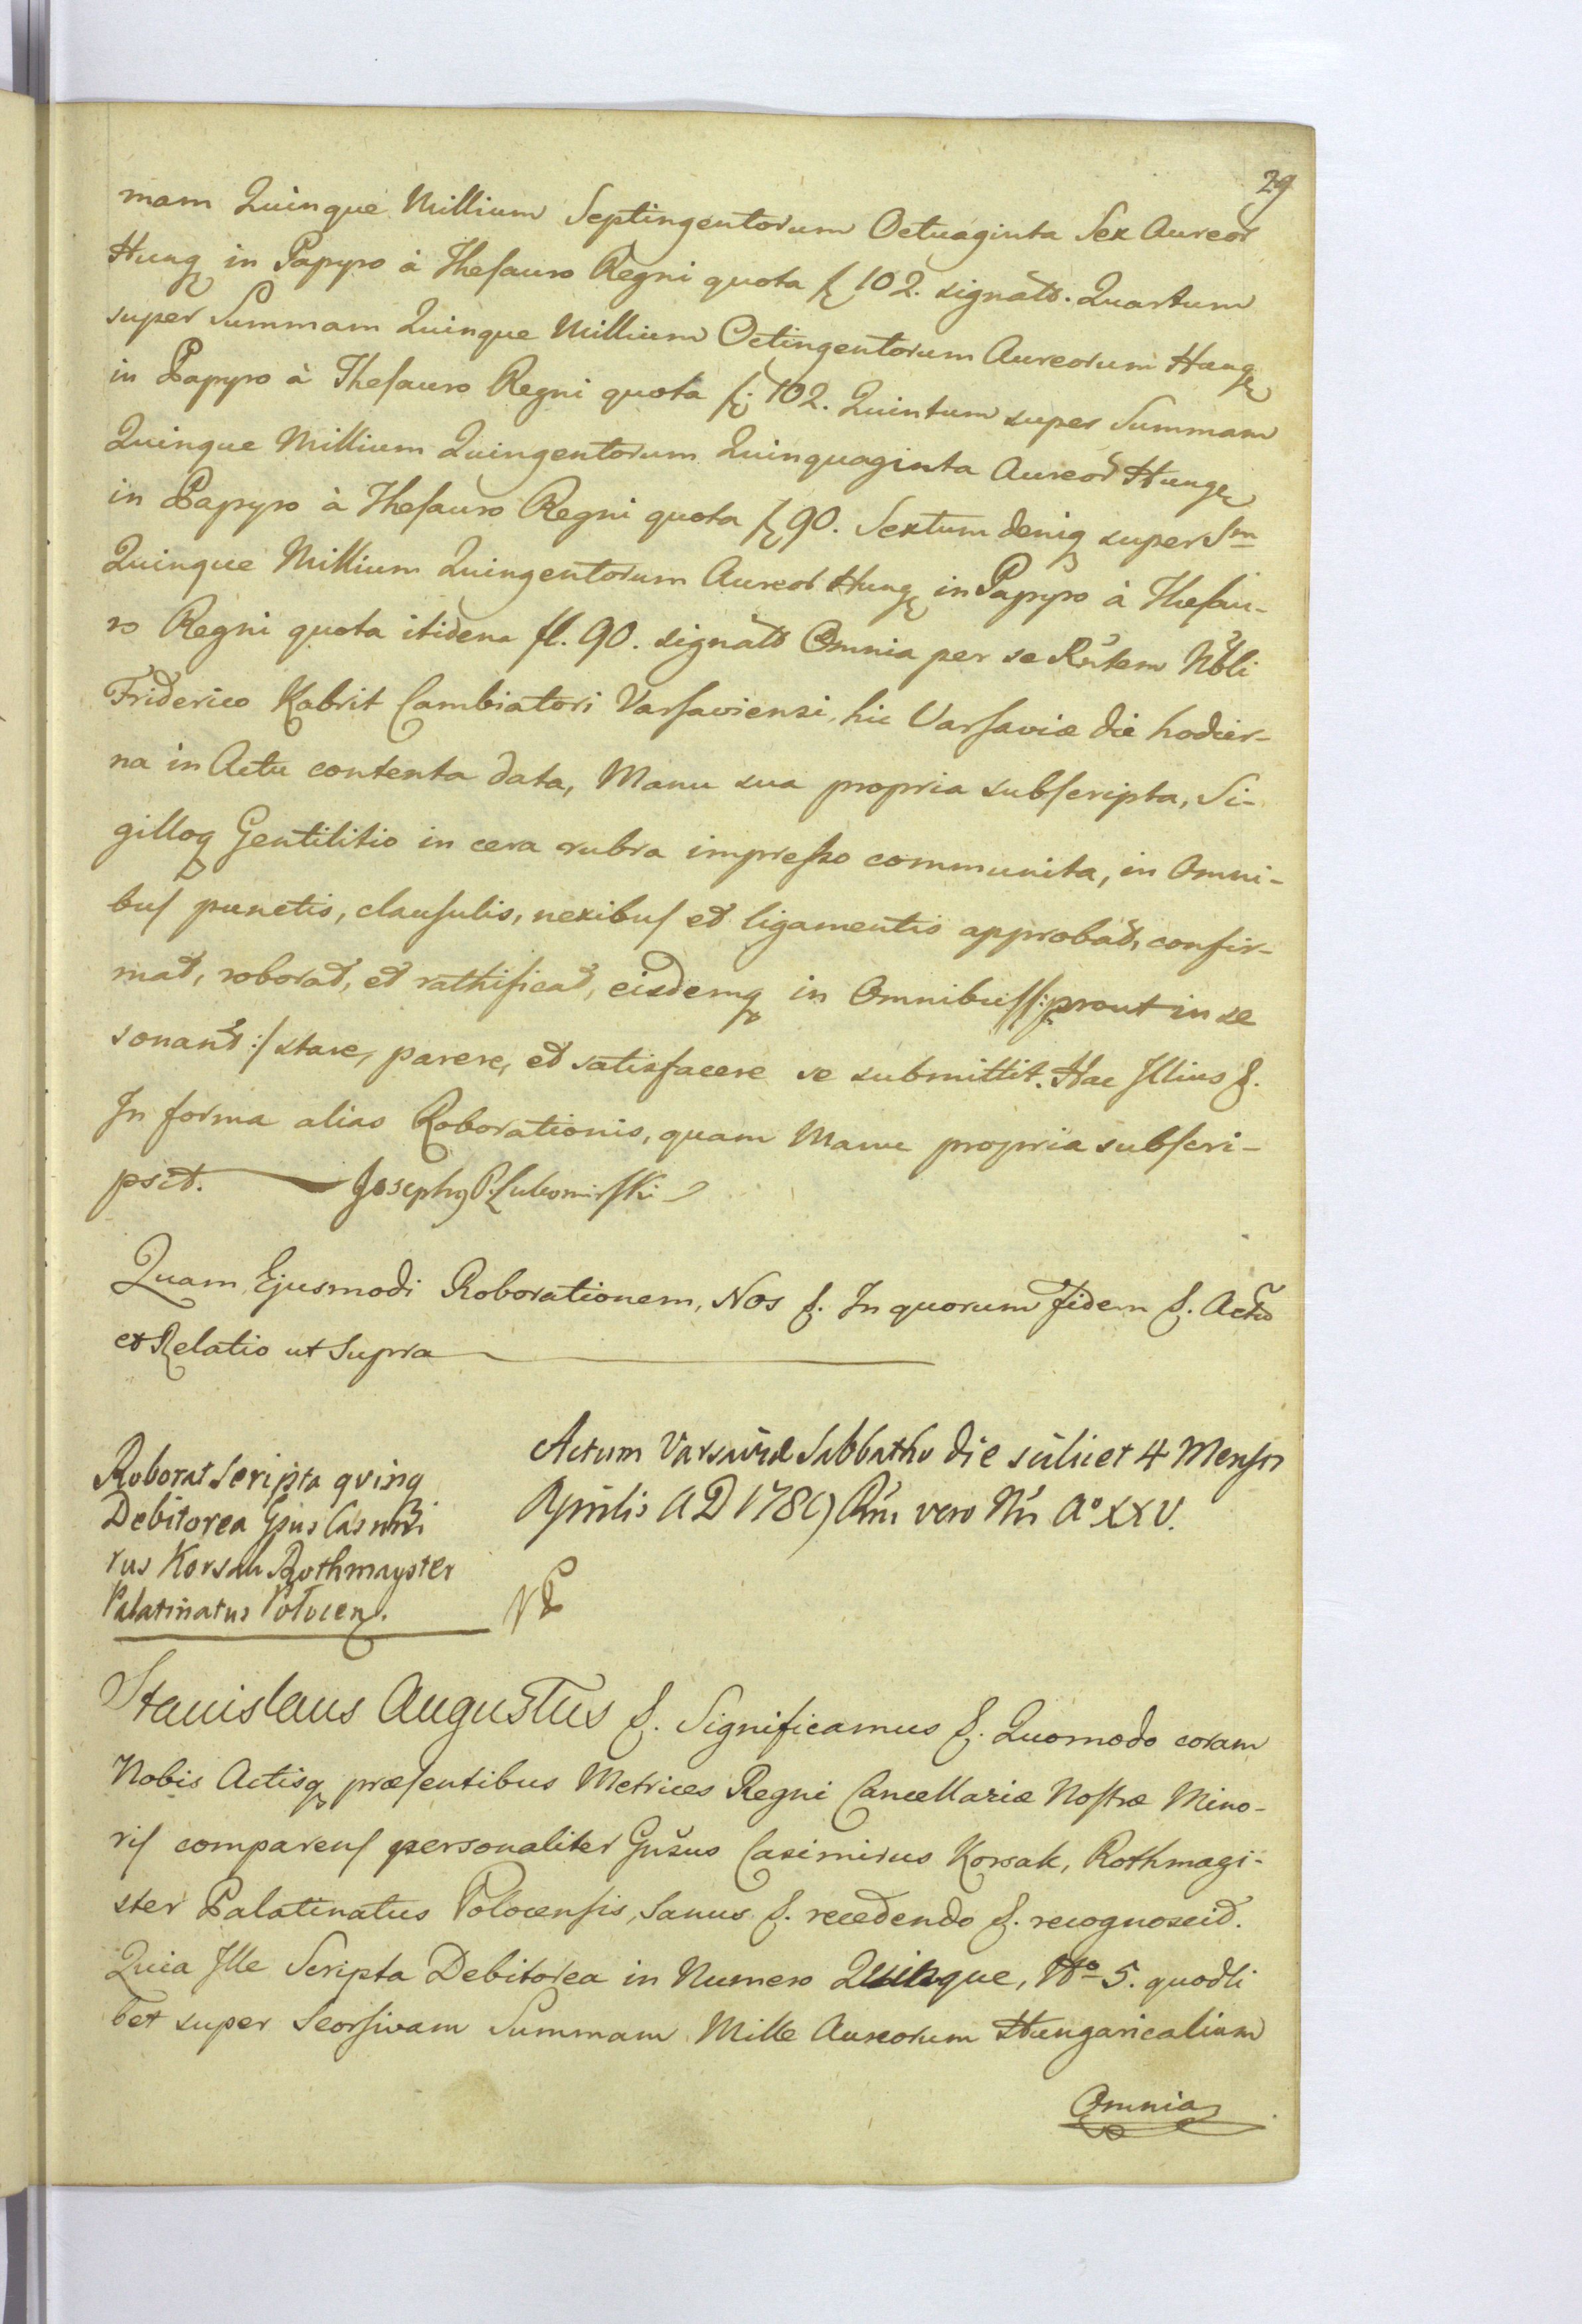 29
mam Quinque Millium Septingentorum Octuaginta Sex Aureor
Hungq in Papyro à Thesauro Regni quota fl 102. signato. Quartum
super Summam Quinque Millium Octingentorum Aureorum Hungq
in Papyro à Thesauro Regni quota fl: 102. Quintum super Summam
Quinque Millium Quingentorum Quinquaginta Aureor Hungq
in Papyro à Thesauro Regni quota fl 90. Sextum deniq super Sm
Quinque Millium Quingentorum Aureor Hungq in Papyro à Thesau-
ro Regni quota itidem fl. 90. signato Omnia per se Rntem Nbli
Friderico Kabrit Cambiatori Varsaviensi, hic Varsaviæ die hodier-
na in Actu contenta data, Manu sua propria subscripta, Si-
gilloq Gentilitio in cera rubra impresso communita, in Omni-
bus punctis, clausulis, nexibus et ligamentis approbat, confir-
mat, roborat, et rathificat, eisdemq in Omnibus /:prout in se
sonant:/ stare, parere, et satisfacere se submittit. Hac Illius &.
In forma alias Roborationis, quam Manu propria subscri-
psit. Josephq P. Lubomirski
Quam Ejusmodi Roborationem, Nos &. In quorum Fidem &. Actu
et Relatio ut Supra
Actum Varsaviæ Sabbatho die scilicet 4 Mensis
Aprilis A D 1789 Rni vero Nri Aº XXV.
Roborat Scripta qving
Debitorea Gsus Casimi
rus Korsak Rothmayster
Palatinatus Polocen.
Stanislaus Augustus &. Significamus &. Quomodo coram
Nobis Actisq præsentibus Metrices Regni Cancellariæ Nostræ Mino-
ris comparens personaliter Gnsus Casimirus Korsak, Rothmagi-
ster Palatinatus Polocensis, Sanus &. recedendo &. recognoscit.
Quia Ille Scripta Debitorea in Numero Quinque, Nº 5. quodli
bet super Seorsivam Summam Mille Aureorum Hungaricalium
Omnia